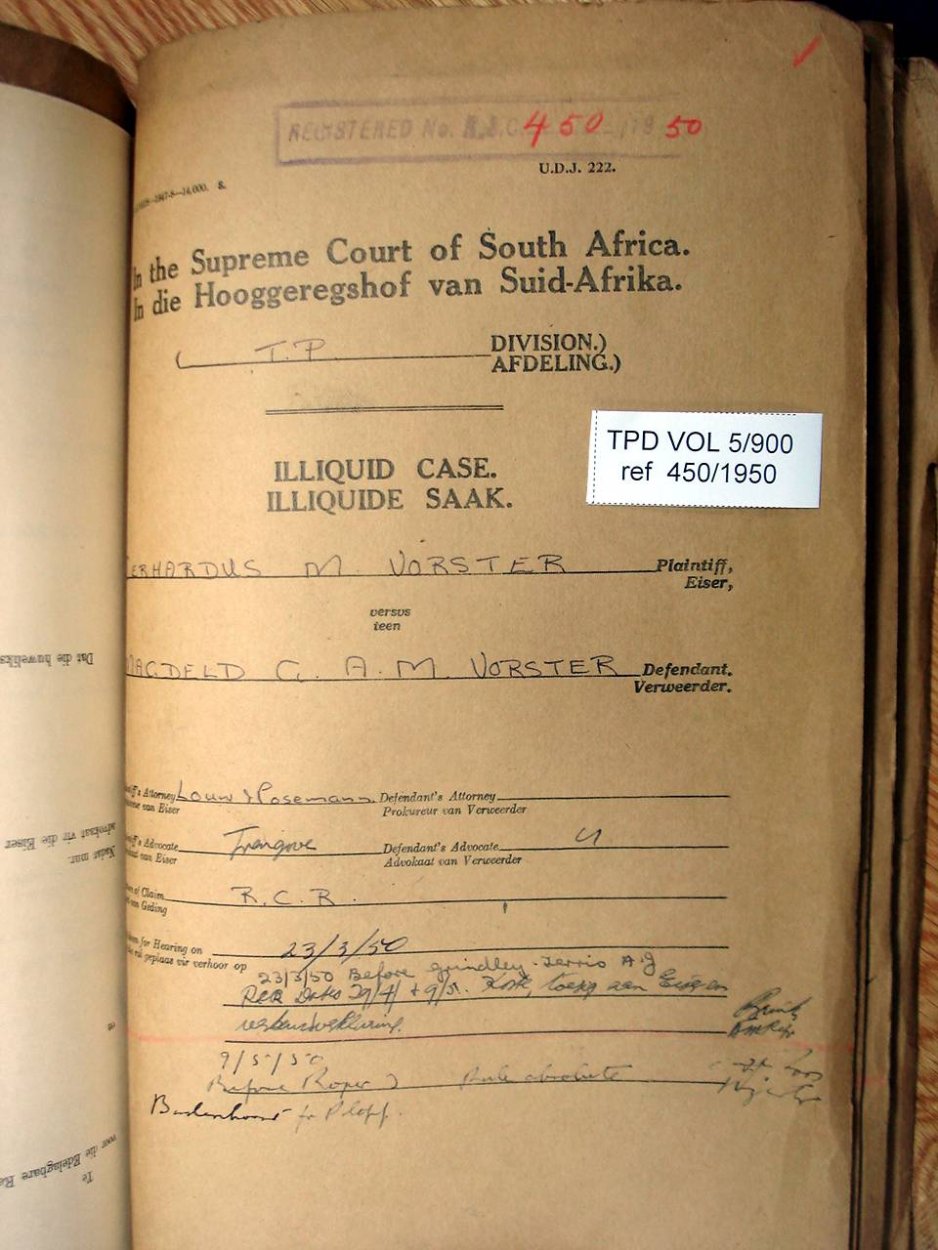 REGISTERED No. 450 / 19 50
U.D.J. 222.
—1947-8—14,000. S.
In the Supreme Court of South Africa.
In die Hooggeregshof van Suid-Afrika.
( T.P. DIVISION.)
AFDELING.)
TPD VOL 5/900
ref 450/1950
ILLIQUID CASE.
ILLIQUIDE SAAK.
ERHARDUS M. VORSTER Plaintiff,
Eiser,
versus
teen
MAGDELD C. A. M. VORSTER Defendant.
Verweerder.
Attorney Louw & Rosemann. Defendant's Attorney
van Eiser Prokureur van Verweerder
Advocate Trengove Defendant's Advocate
van Eiser Advokaat van Verweerder
of Claim R.C.R.
van Geding
for Hearing on 23/3/50
geplaas vir verhoor op
23/3/50 Before Grindley-Ferris A.J
Dates 29/4 & 9/5. aan Eiser en
9/5/50
Before Roper J Rule absolute
Badenhorst for Plapp.
Dat die huweliks
advokaat vir die Eiser
Naias mnr.
en
voor die Edelagbare
Te